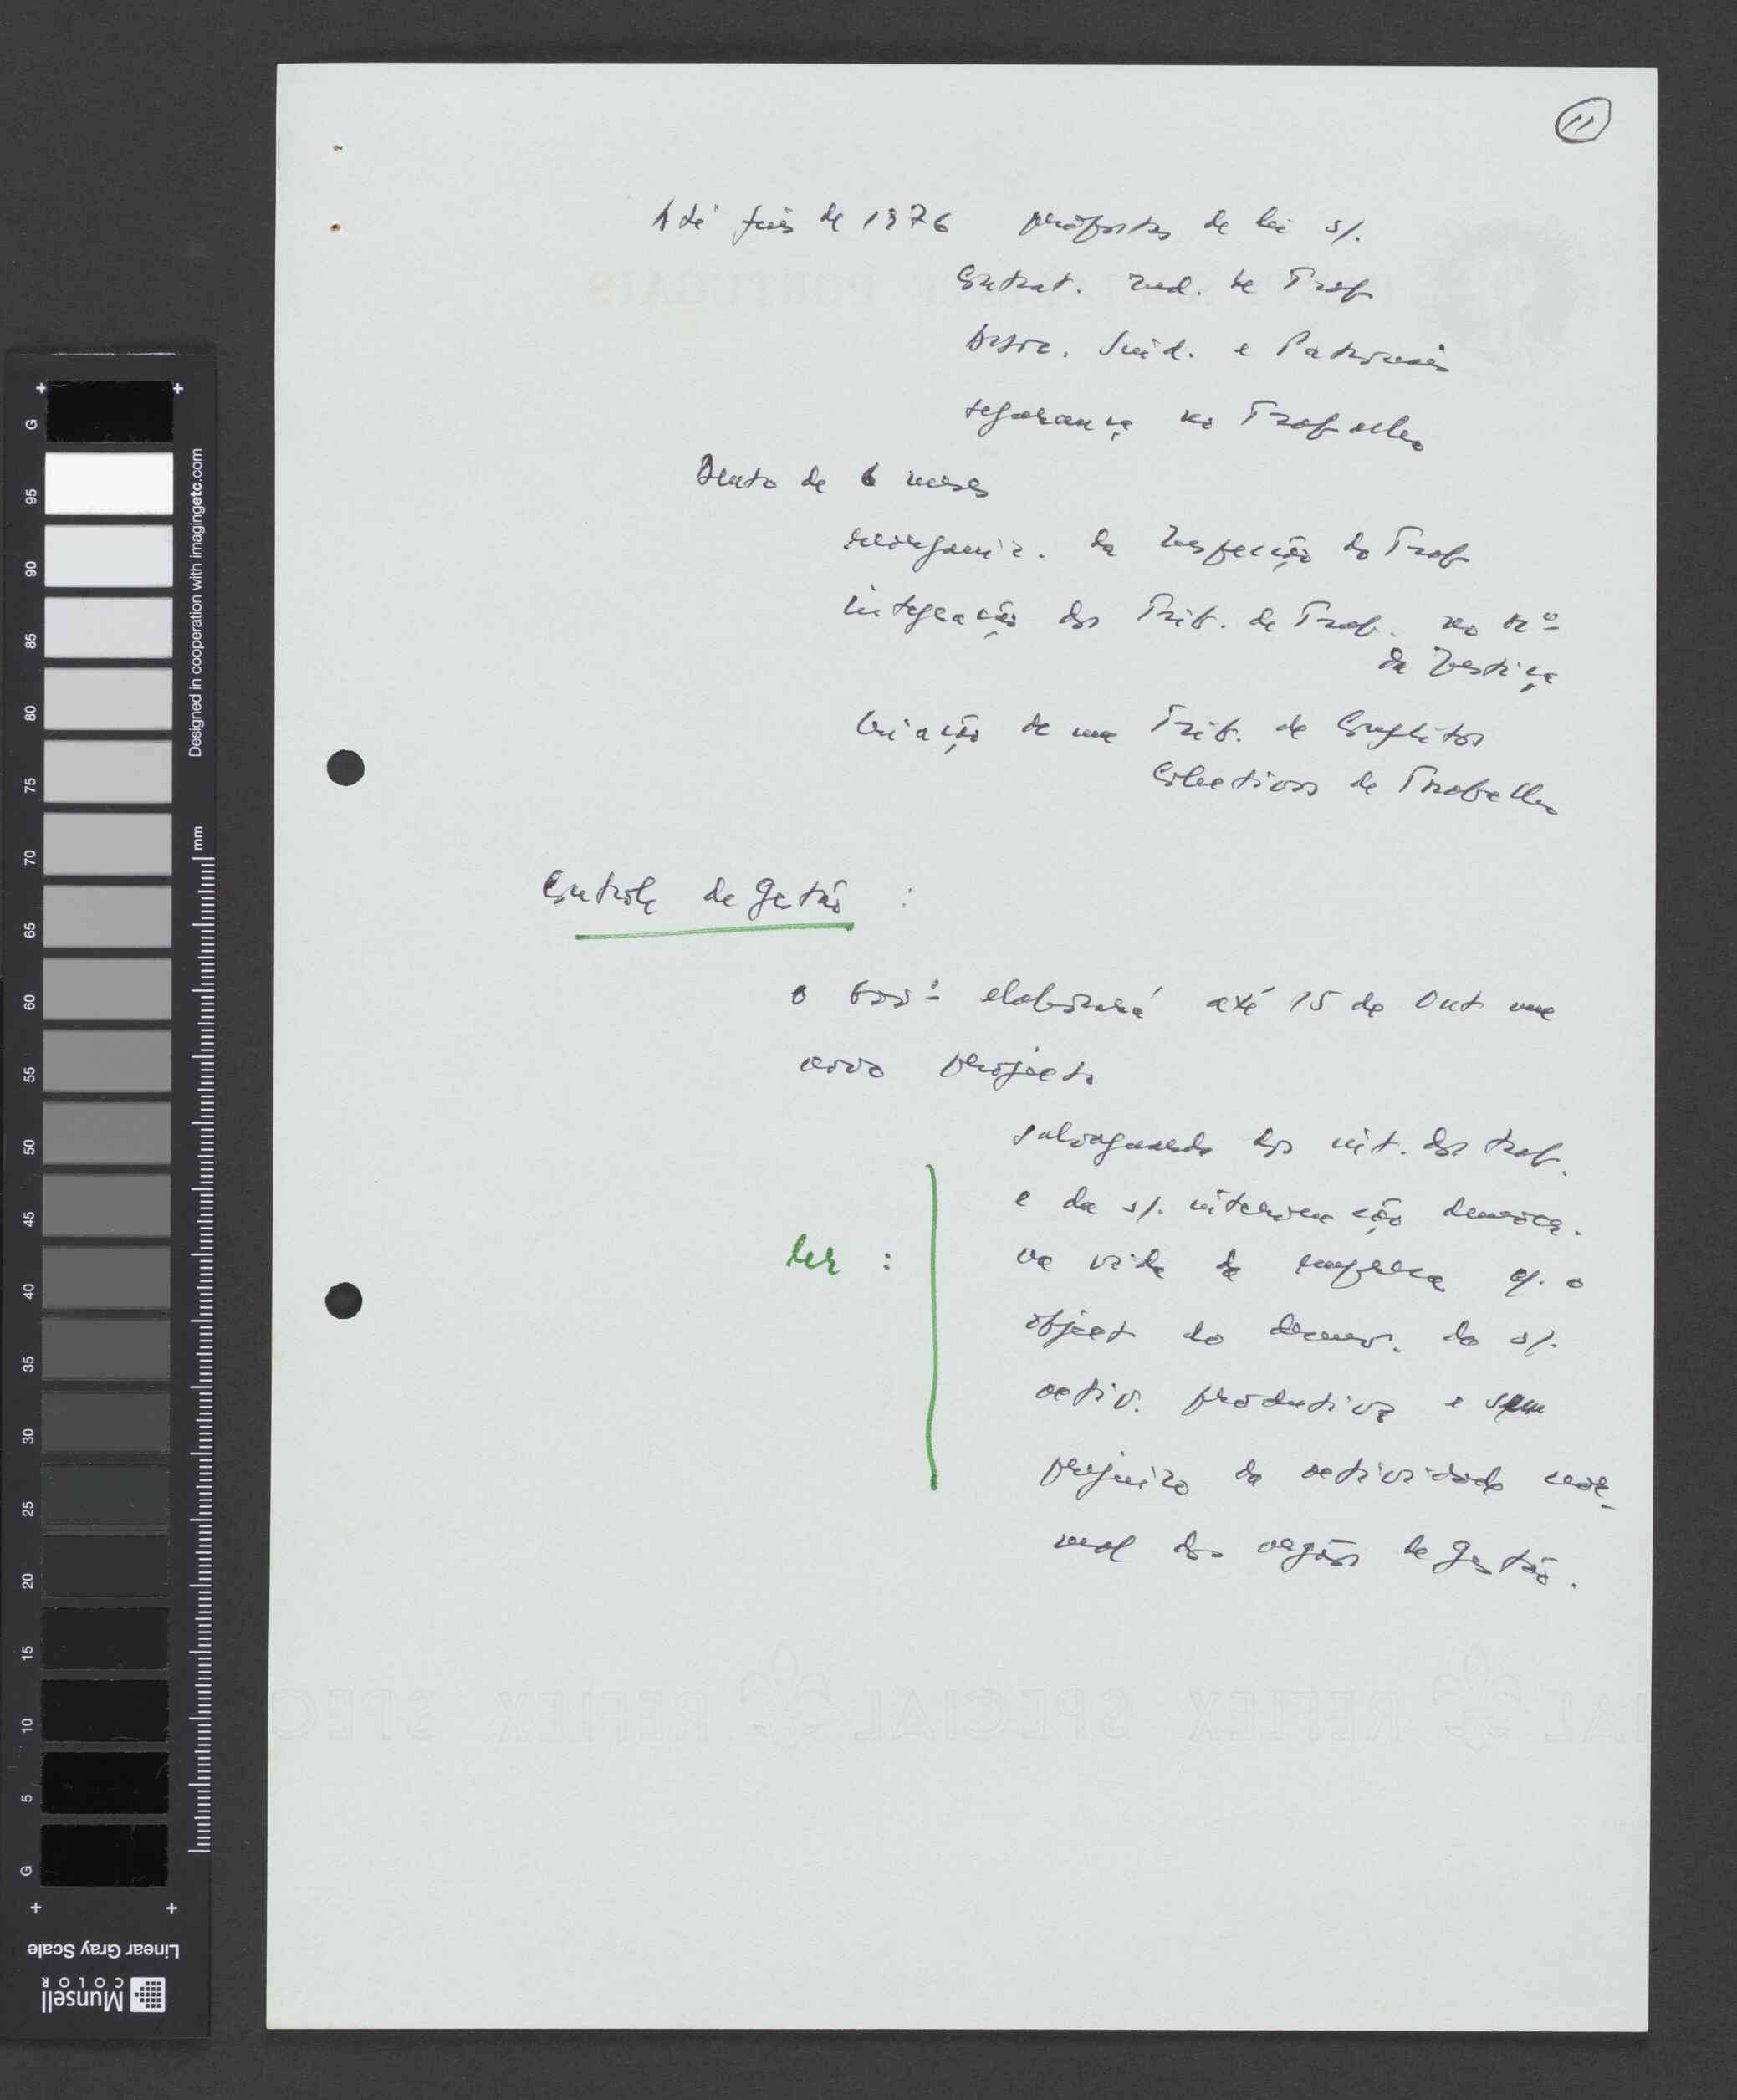 11
Até fins de 1976 propostas de lei s/.
Contrat. ind. de Trab
Assoc. Sind. e Patronais
segurança no Trabalho
Dentro de 6 meses
reorganiz. da Inspecção do Trab
integração dos Trib. de Trab. no Mº
da Justiça
Criação de um Trib. de Conflitos
Colectivos de Trabalho
Controle de Gestão :
o Govº elaborará até 15 de Out um
novo projecto
salvaguarda dos int. dos trab.
e da s/. intervenção democr.
ler :
na vida da empresa c/. o
object do desenv. da s/.
activ. produtiva e sem
prejuizo da actividade nor-
mal dos orgãos de gestão.
PORTUGAIS
REFLEX SPECIAL
REFLEX SPECIAL
G
95
90
85
80
75
70
65
60
55
50
45
40
35
30
25
20
15
10
5
G
Designed in cooperation with imagingetc.com
mm
Linear Gray Scale
Munsell
COLOR